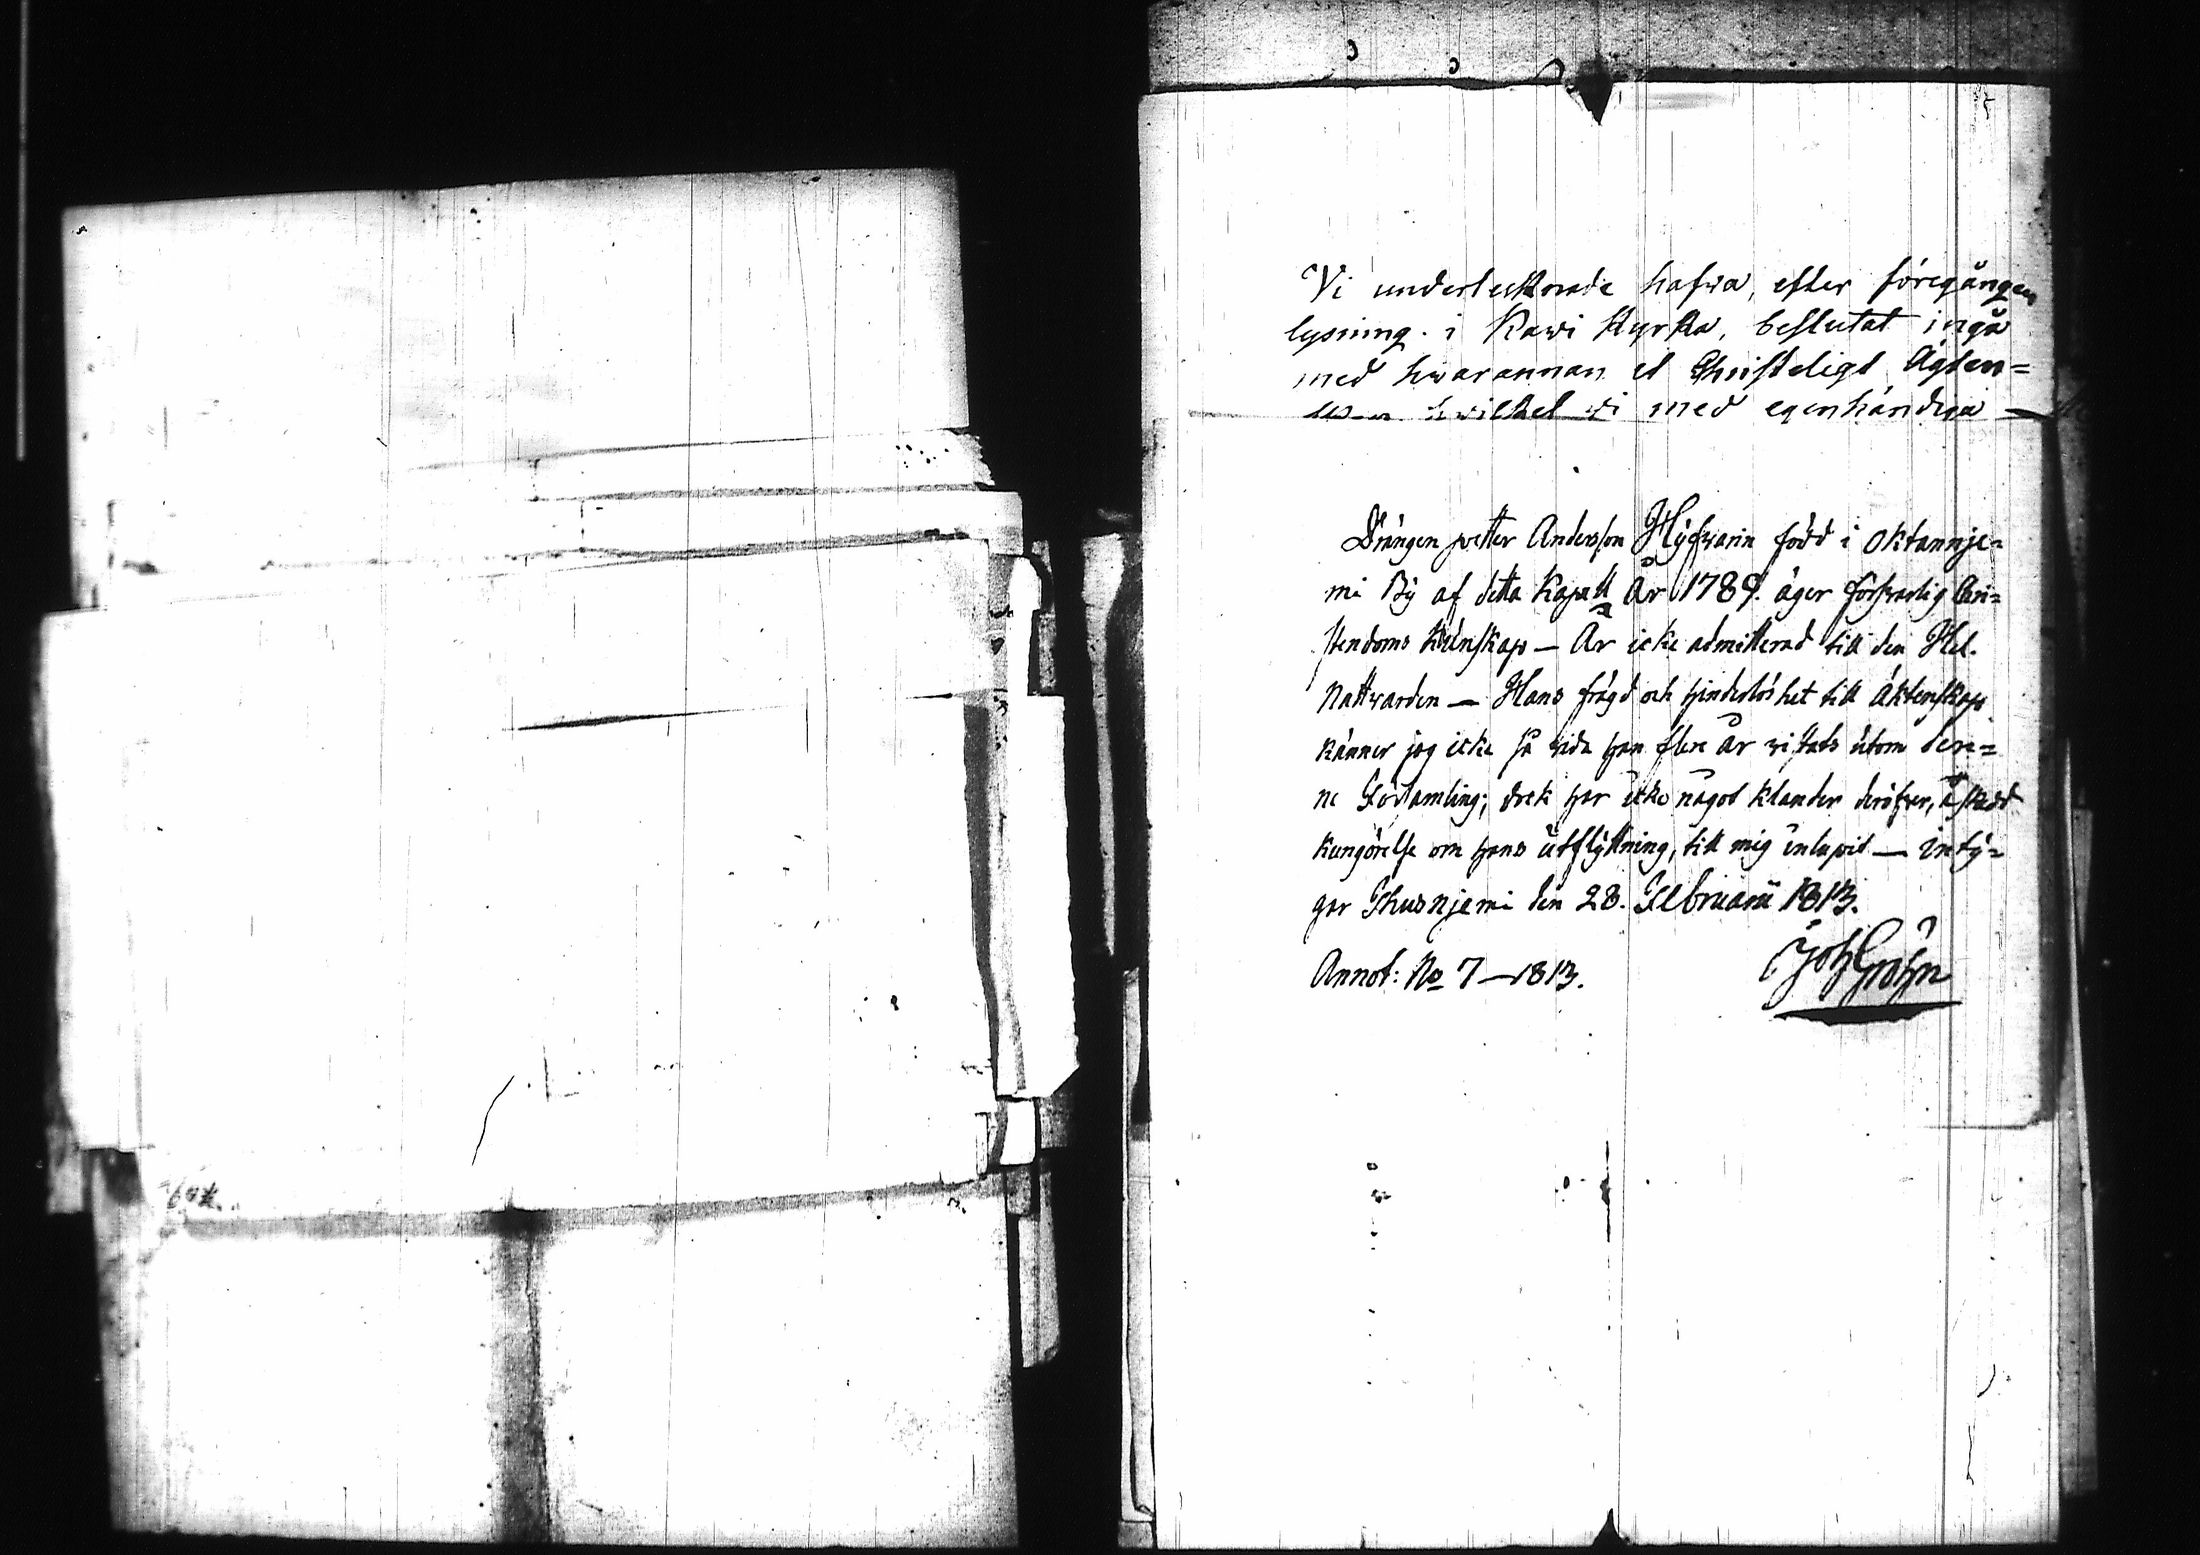 Vi underteknade hafva, efter föregången
lysning i Kavi Kyrka, beslutat ingå
med hvarannan et Christeligt Ägten=
hvilket vi med egenhändiga
Drängen petter Andersson Hyfvarin född i Oktannje=
mi By af detta Kapell År 1789. äger försvarlig Cri=
stendoms Kunskap — Är icke admitterad till den Hel.
Nattvarden — Hans frägd och hinderlöshet till äktenskap
känner jag icke så vida han flere år vistats utom den=
ne Församling; dock har icke något klander deröfver, å skedd
kungörelse om hans utflyttning, till mig inlupit — inty=
gar Thusnjemi den 28. Februarii 1813.
Annot: No 7 — 1813.
Joh Gröhn